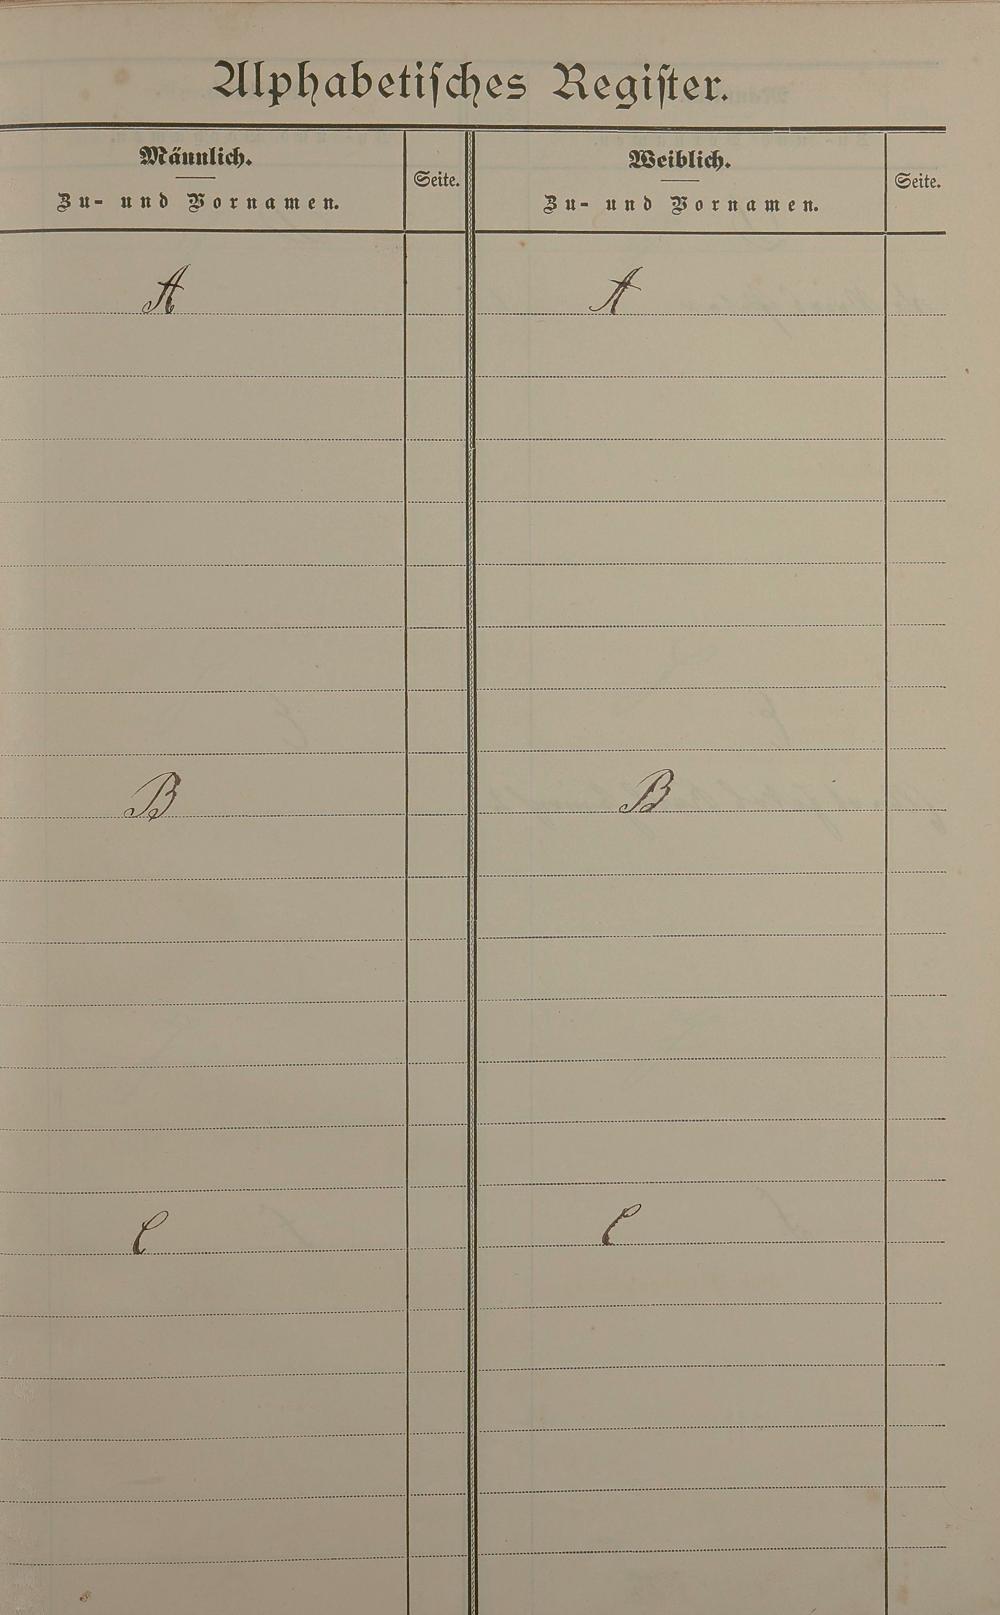 Alphabetisches Register.
Männlich.
Zu- und Vornamen.
Seite.
Weiblich.
Zu- und Vornamen.
Seite.
A
A
B
B
C
C